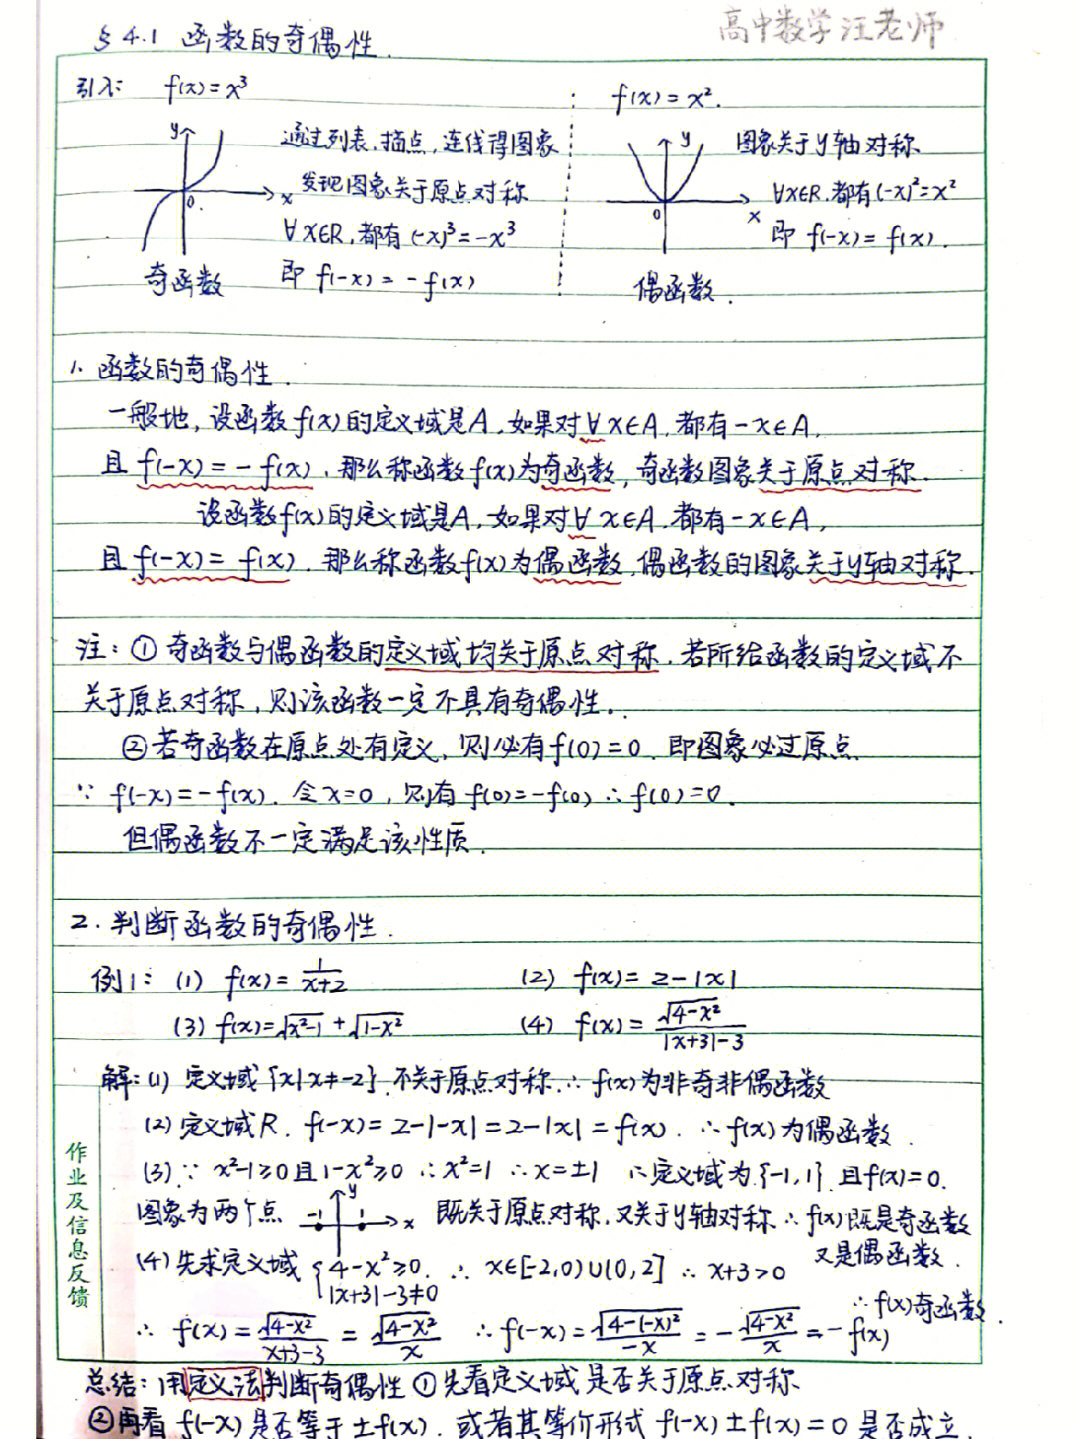 高中数学汪老师
§4.1 函数的奇偶性.
引入: f(x)=x³
y
通过列表、描点、连线得图象
发现图象关于原点对称
x
0
∀x∈R,都有(-x)³=-x³
即 f(-x)=-f(x)
奇函数
f(x)=x².
y
图象关于y轴对称
∀x∈R,都有(-x)²=x²
x
0
即 f(-x)=f(x).
偶函数.
1. 函数的奇偶性.
一般地,设函数f(x)的定义域是A,如果对∀x∈A,都有-x∈A,
且 f(-x)=-f(x),那么称函数f(x)为奇函数,奇函数图象关于原点对称.
设函数f(x)的定义域是A,如果对∀x∈A,都有-x∈A,
且 f(-x)=f(x),那么称函数f(x)为偶函数,偶函数的图象关于y轴对称.
注: ① 奇函数与偶函数的定义域均关于原点对称,若所给函数的定义域不
关于原点对称,则该函数一定不具有奇偶性.
②若奇函数在原点处有定义,则必有f(0)=0,即图象必过原点
∵ f(-x)=-f(x),令x=0,则有f(0)=-f(0) ∴f(0)=0.
但偶函数不一定满足该性质.
2. 判断函数的奇偶性.
例1: (1) f(x)=1/(x+2) (2) f(x)=2-|x|
(3) f(x)=√(x²-1)+√(1-x²) (4) f(x)=√(4-x²)/(|x+3|-3)
解:(1) 定义域{x|x≠-2},不关于原点对称 ∴f(x)为非奇非偶函数
(2)定义域R. f(-x)=2-|-x|=2-|x|=f(x). ∴f(x)为偶函数.
(3)∵ x²-1≥0且1-x²≥0 ∴x²=1 ∴x=±1 ∴定义域为{-1,1},且f(x)=0.
图象为两个点 -1 1 x y 既关于原点对称,又关于y轴对称 ∴f(x)既是奇函数
又是偶函数.
(4)先求定义域 {4-x²≥0, |x+3|-3≠0 ∴ x∈[-2,0)∪(0,2] ∴ x+3>0
∴ f(x)=√(4-x²)/(x+3-3)=√(4-x²)/x ∴f(-x)=√(4-(-x)²)/(-x)=-√(4-x²)/x=-f(x)
∴f(x)奇函数.
作业及信息反馈
总结: 用定义法判断奇偶性 ①先看定义域是否关于原点对称
②再看 f(-x)是否等于±f(x),或者其等价形式 f(-x)±f(x)=0 是否成立.